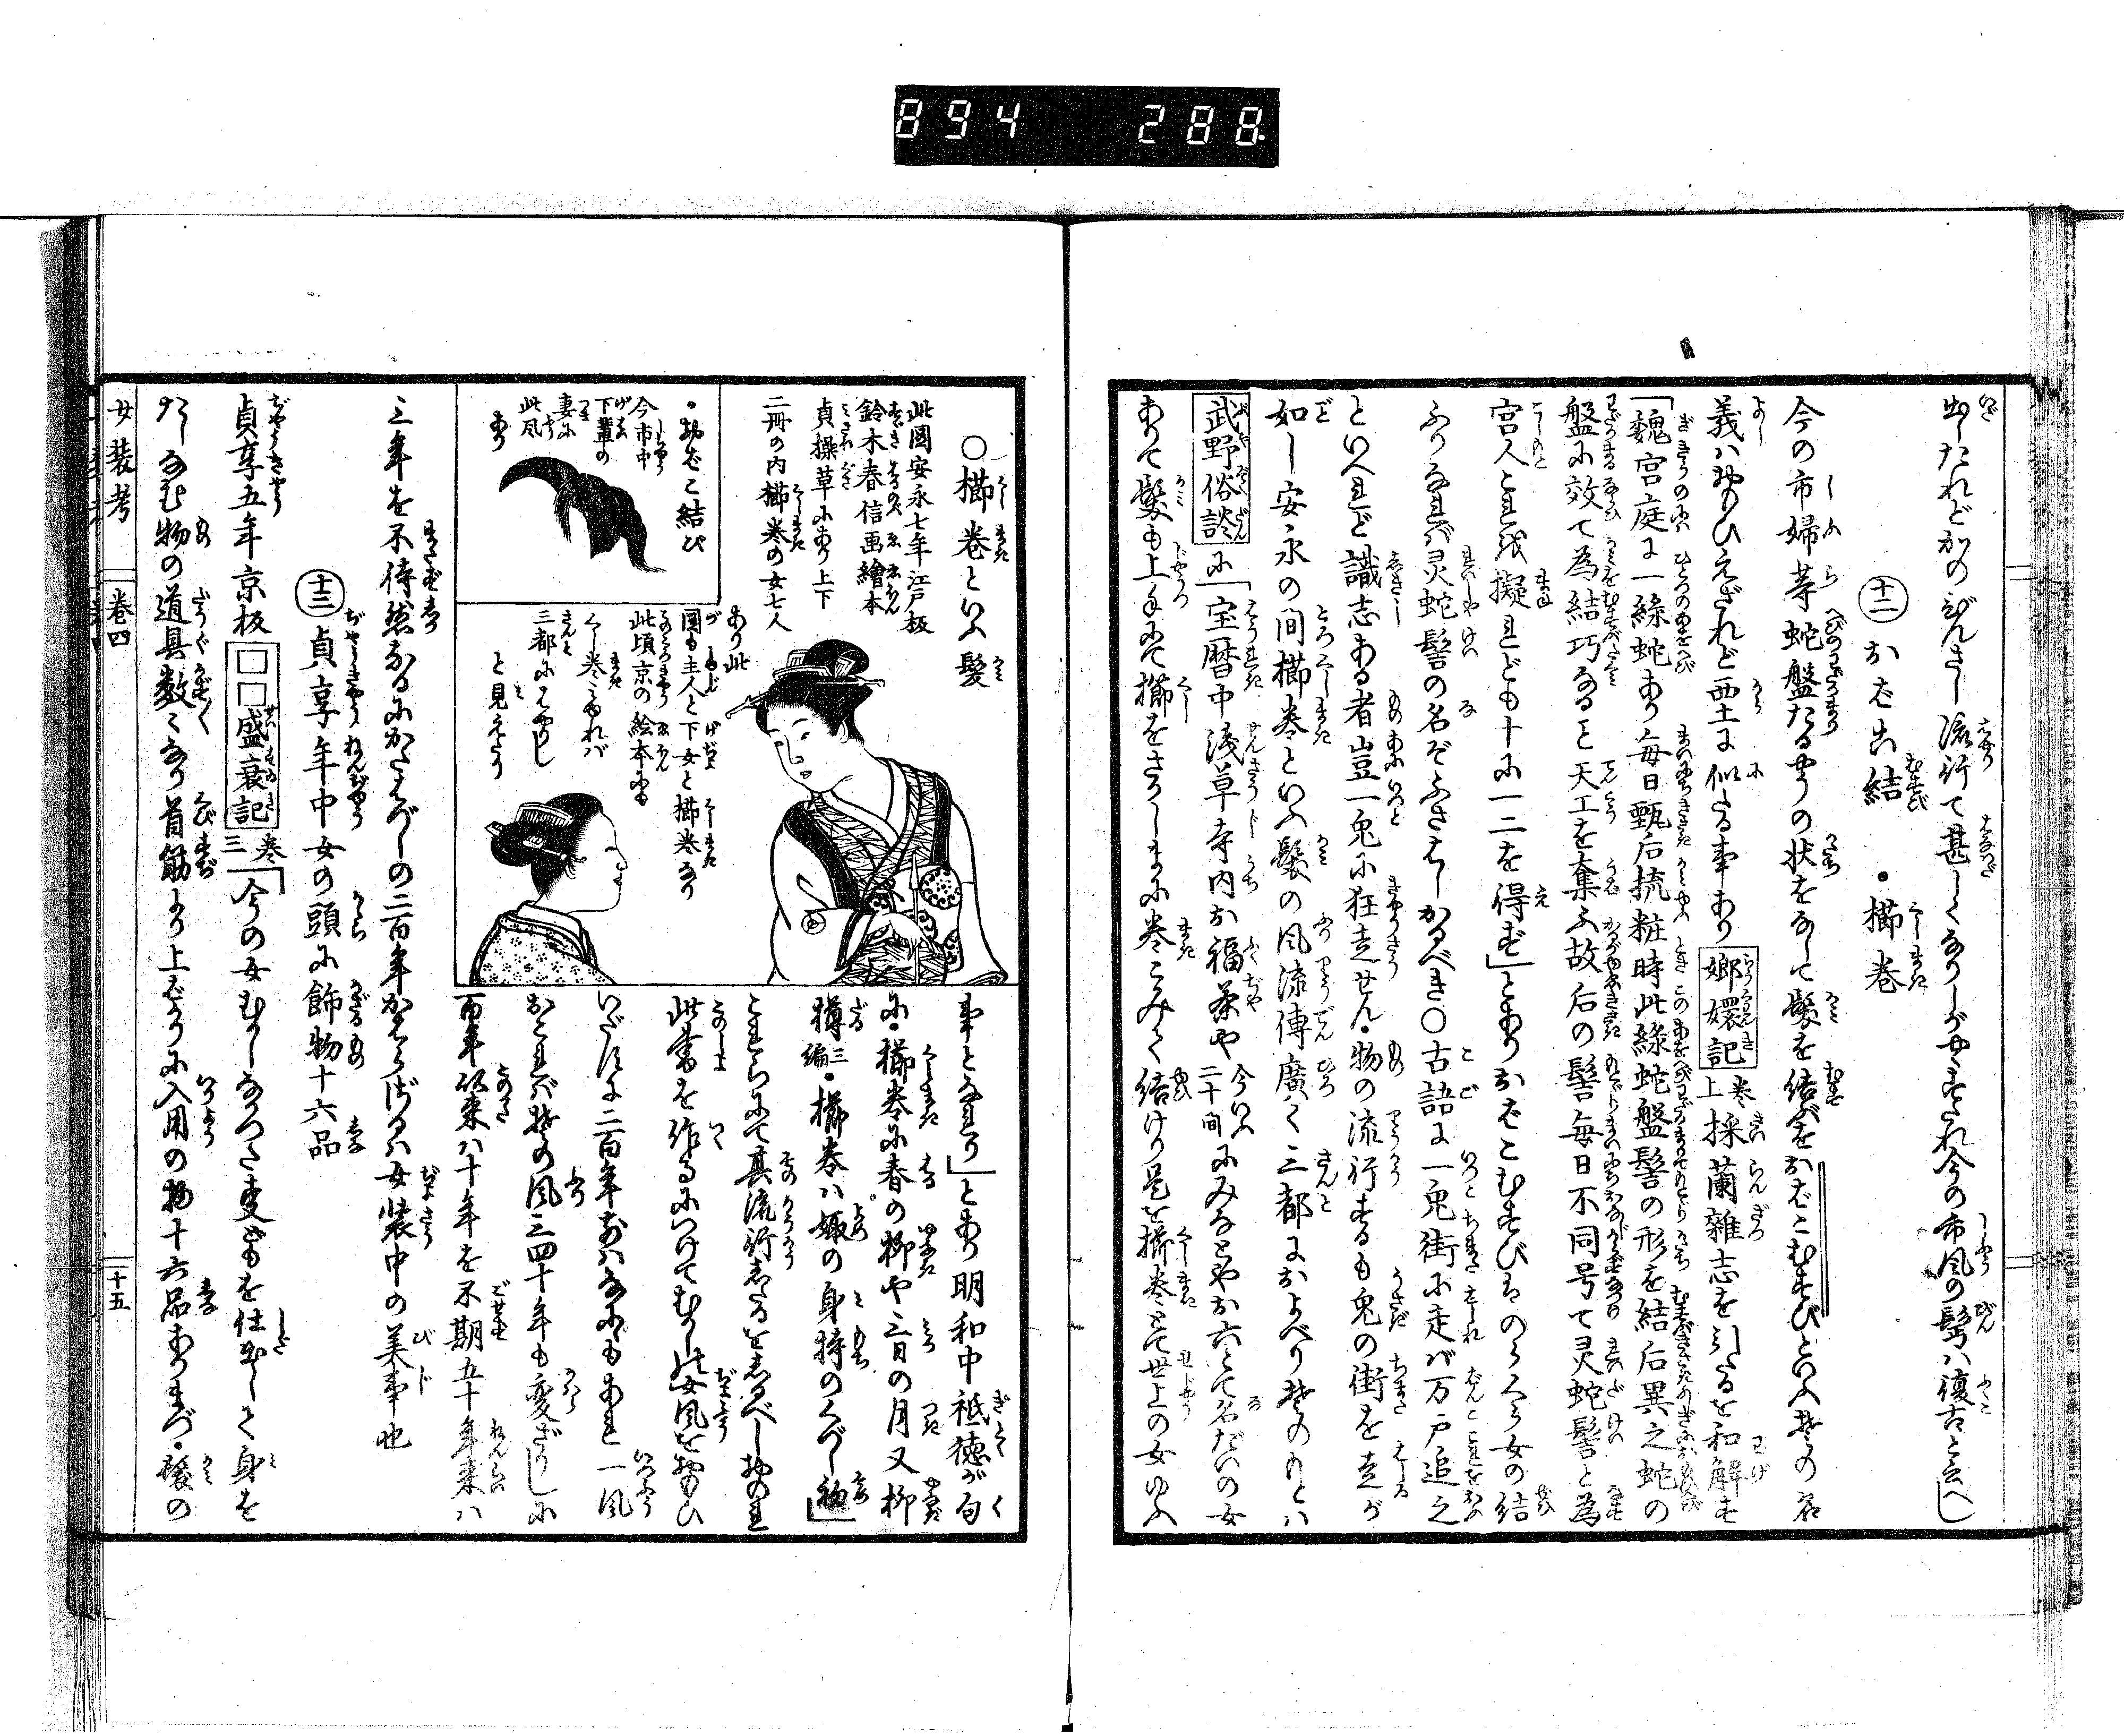 894 288
出したれどかのびんさし流行て甚しくなりしがやゝすたれ今の市風の鬂ハ復古と云べし
十二 おばこ結 ・櫛巻
今の市婦等蛇盤たるやうの状をなして髪を結ぶをおばこむすびといへりその名
義ハおもひえざれど西土に似たる事あり
瑯嬛記 巻上 採蘭雑志を引たるを和解す
「魏宮庭に一緑蛇あり毎日甄后梳粧時此緑蛇盤髻の形を結后異之蛇の
盤に效て為結巧なるを天工を奪ふ故后の髻毎日不同号て灵蛇髻と為
宮人これを擬れども十に一二を得ず」とありおばこむすびはのろへろ女の結
ふりなれば灵蛇髻の名ぞふさはしかるべき○古語に一兎街に走バ万戸追之
といへれど識志ある者豈一兎に狂走せん・物の流行するも兎の街を走が
如し安永の間櫛巻といふ髪の風流傳廣く三都におよべりそのもとハ
武野俗談に「宝暦中浅草寺内お福茶や 今いふ二十間 にみなとやお六とて名だいの女
ありて髪も上手にて櫛をさかしまに巻こみて結けり是を櫛巻とて世上の女ゆふ
○櫛巻といふ髪
此図安永七年江戸板
鈴木春信画繪本
貞操草にあり上下
二冊の内櫛巻の女七人
あり此
圖も主人と下女と櫛巻なり
此頃京の絵本にも
くし巻あれバ
三都にはやりし
と見えたり
・おばこ結び
今市中
下輩の
妻に
此風
あり
事となれり」とあり明和中祗徳が句
に・櫛巻に春の柳や三日の月又柳
樽三編・櫛巻ハ娵の身持のくづし初」
これらにて其流行したるをしるべしおのれ
此書を作るにつけてむかしの女風をおもひ
いだすに二百年前ハなにもあれ一風
おこれバその風三四十年も変ざりしに
百年以来ハ十年を不期五十年来ハ
三年を不待然るにかたはしの二百年かはらざるハ女装中の美事也
十三 貞享年中女の頭に飾物十六品
貞享五年京板□□盛衰記 巻三「今の女むかしなかつた事どもを仕出して身を
たしなむ物の道具数々なり首筋より上ばかりに入用の物十六品ありまづ・髪の
女装考 巻四 十五